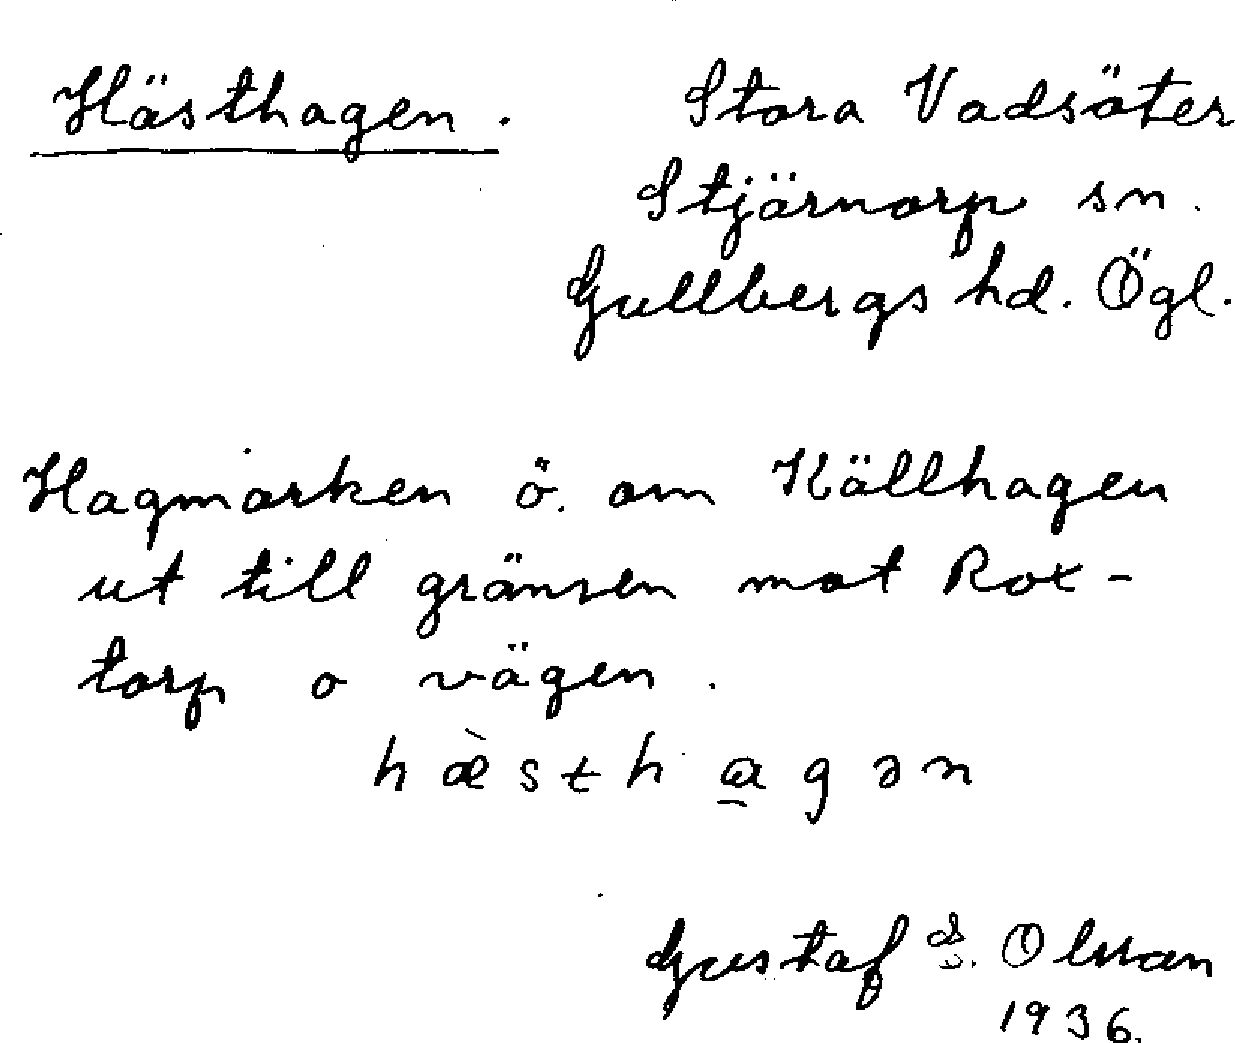 Hästhagen.
Stora Vadsäter
Stjärnorp sn.
Gullbergs hd. Ögl.
Hagmarken ö. om Källhagen
ut till gränsen mot Rox-
torp o vägen.
hæ̀stha̱gən
Gustaf S. Olsson
1936.